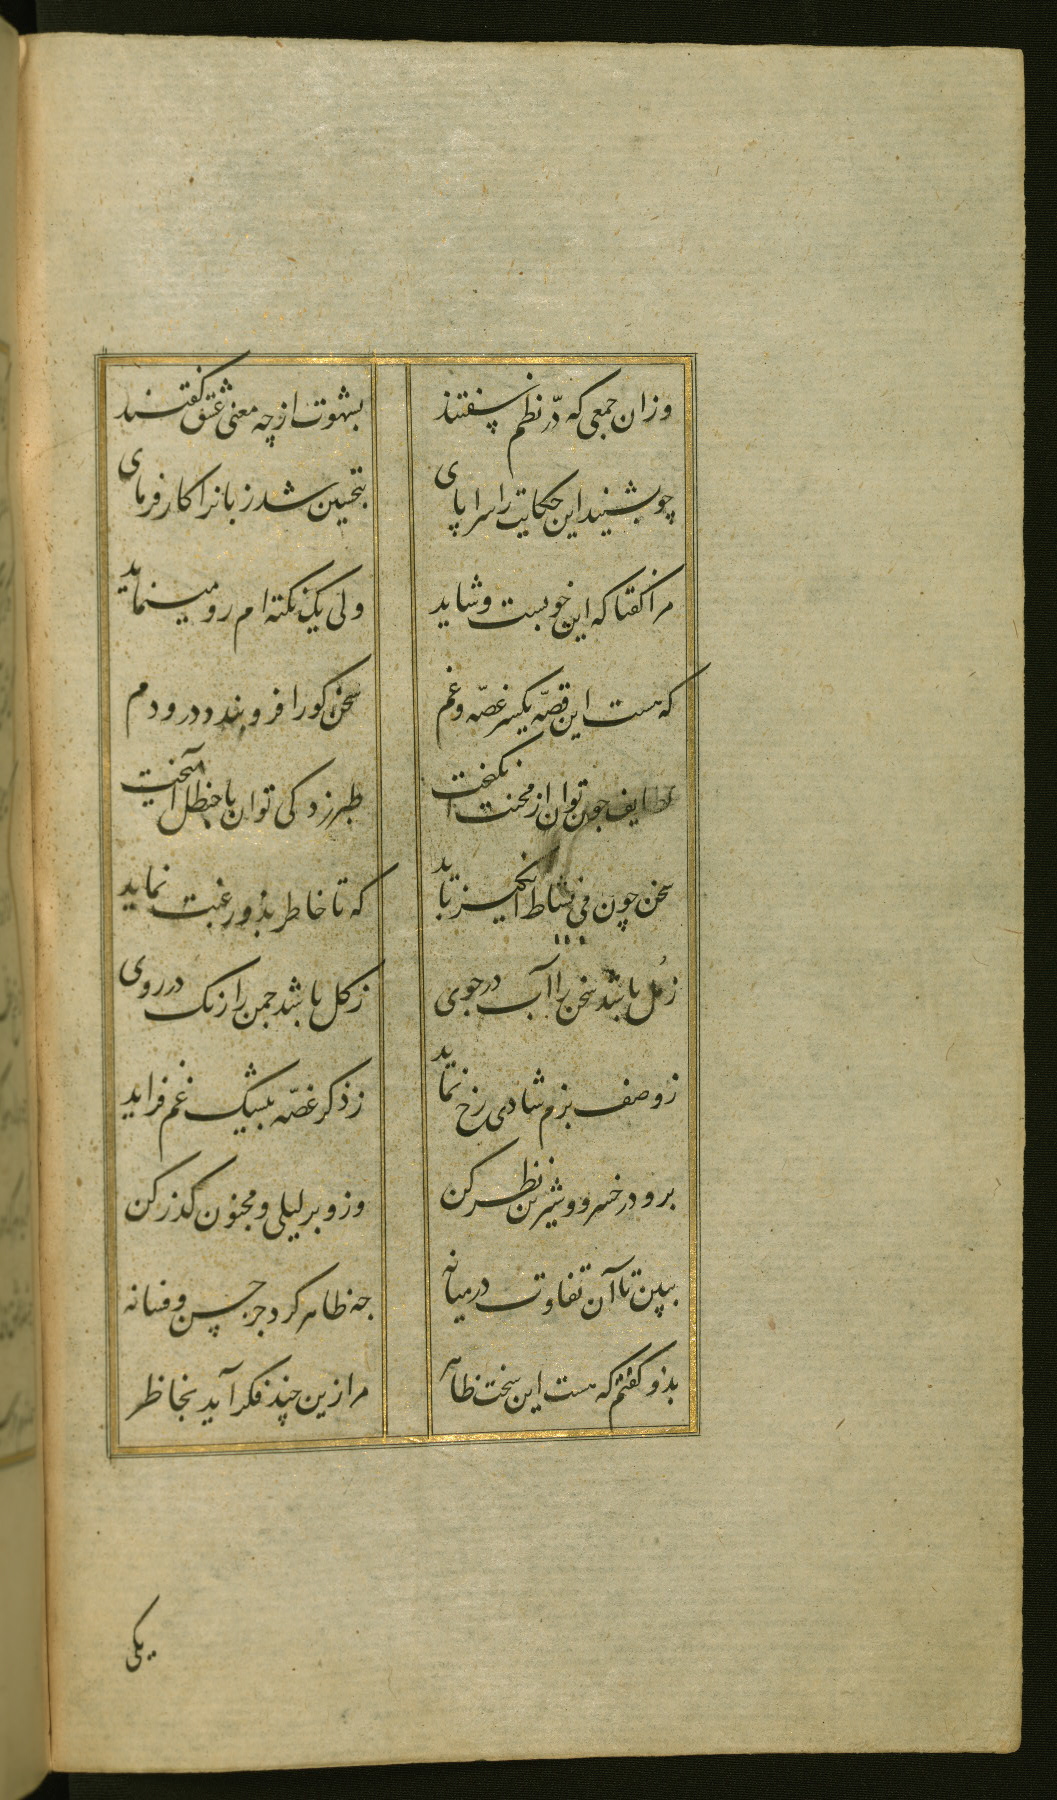 وزان جمعی که درّ نظم سفتند بشهوت از چه معنی عشق گفتند
چو بشنید این حکایت را سراپای بتحسین شد زبانرا کارفرمای
مرا گفتا که این خوبست و شاید ولی یک نکته ام رو مینماید
که هست این قصّه یکسر غصّه و غم سخن کو را فرو بندد درو دم
لطایف چون توان از محنت انگیخت طبرزد کی توان با حنظل آمیخت
سخن چون می نشاط انگیز باید که تا خاطر بذو رغبت نماید
ز مُل باشد سخن را آب در جوی ز گل باشد چمن را رنک در روی
ز وصف بزم شادی رخ نماید ز ذکر غصّه بیشک غم فزاید
برو در خسرو و شیرین نظر کن وزو بر لیلی و مجنون گذر کن
ببین تا آن تفاوت در میانه چه ظاهر کرد جز حسن و فسانه
بذو گفتم که هست این سخت ظاهر مرا زین چند فکر آید بخاطر
یکی